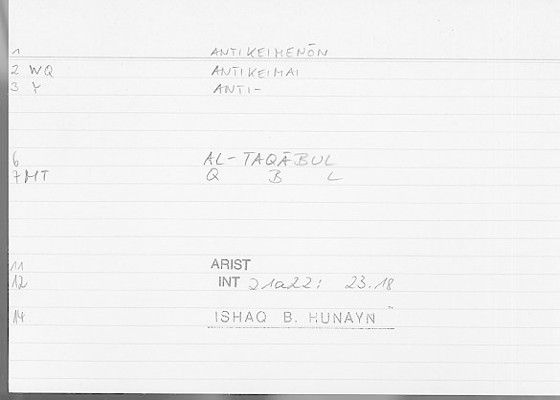 1 ANTIKEIMENŌN
2 WQ ANTIKEIMAI
3 Y ANTI-
6 AL-TAQĀBUL
7 MT Q B L
11 ARIST
12 INT 21a22: 23.18
14 ISHAQ B. HUNAYN